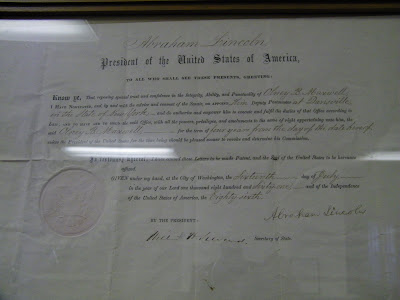 Abraham Lincoln
President of the United States of America,
TO ALL WHO SHALL SEE THESE PRESENTS, GREETING:
Know ye, That reposing special trust and confidence in the Integrity, Ability, and Punctuality of B. Maxwell
I HAVE NOMINATED, and by and with the advice and consent of the Senate, DO APPOINT Him Deputy Postmaster at
in the State of New York, and do authorize and empower him to execute and fulfil the duties of that Office according to
law; AND TO HAVE AND TO HOLD the said Office, with all the powers, privileges, and emoluments to the same of right appertaining unto him, the
said B. Maxwell for the term of four years from the day of the date hereof,
unless the President of the United States for the time being should be pleased sooner to revoke and determine his Commission.
In testimony whereof, I have caused these Letters to be made Patent, and the Seal of the United States to be hereunto
affixed.
GIVEN under my hand, at the City of Washington, the day of July
in the year of our Lord one thousand eight hundred and and of the Independence
of the United States of America, the Eighty sixth.
Abraham Lincoln
BY THE PRESIDENT:
Secretary of State.